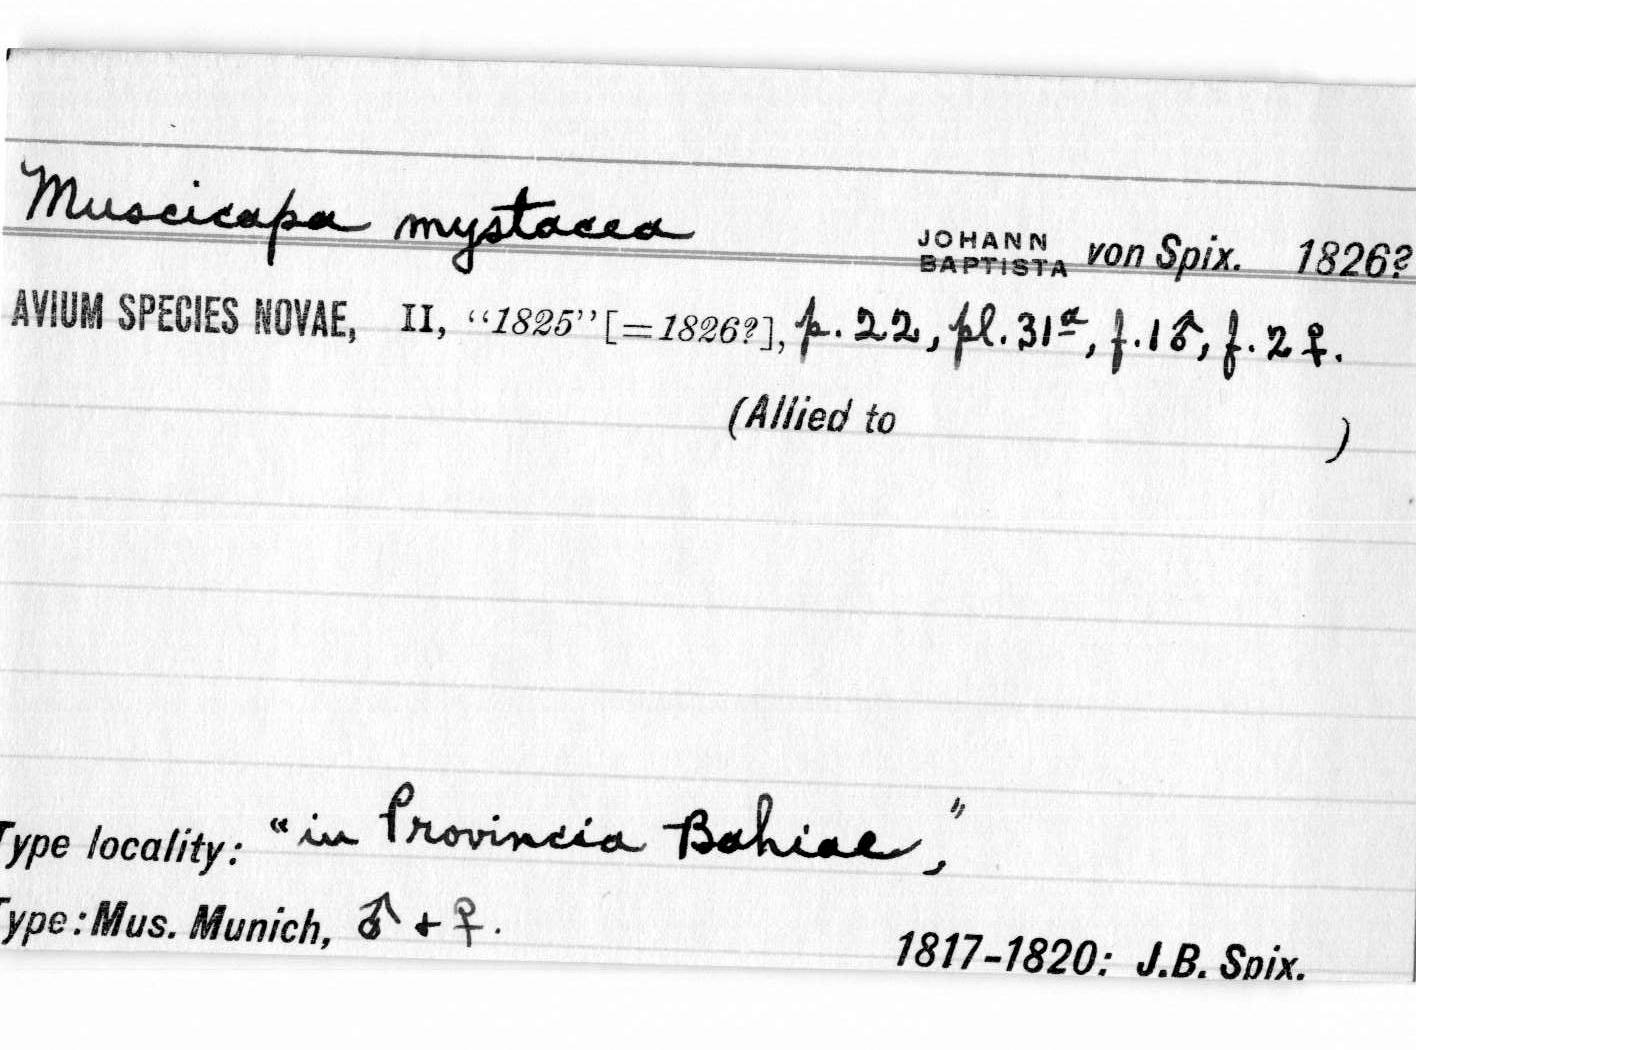 Muscicapa mystacea JOHANN BAPTISTA von Spix. 1826?
AVIUM SPECIES NOVAE, II, “1825” [=1826?], p. 22, pl. 31a, f. 1 ♂, f. 2 ♀.
(Allied to )
Type locality: “in Provincia Bahiae,”
Type: Mus. Munich, ♂ + ♀.
1817-1820: J.B. Spix.